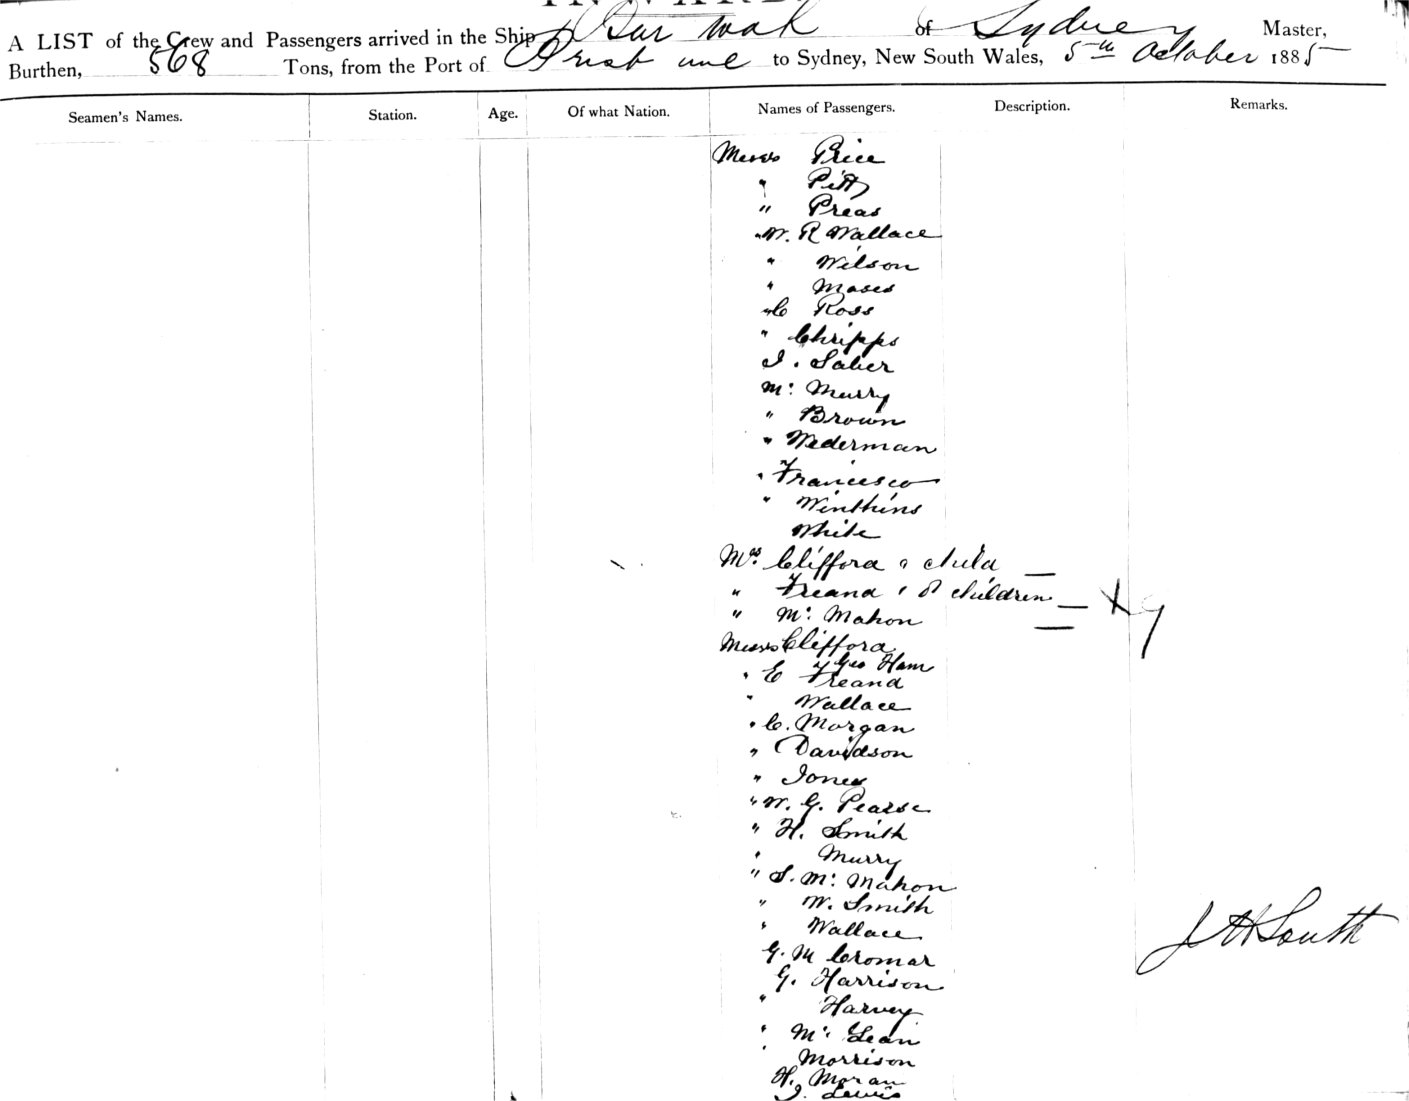 A LIST of the Crew and Passengers arrived in the Ship of Sydney Master,
Burthen, 568 Tons, from the Port of to Sydney, New South Wales, 5th October 1885
Seamen's Names. Station. Age. Of what Nation. Names of Passengers. Description. Remarks.
Messrs Price
" Pitt
" Preas
" W. R Wallace
" Wilson
" Moses
" C Ross
" Chripps
J. Saber
Mc Murry
" Brown
" Wederman
" Francisco
" Winthins
White
Mrs. Clifford & child
" Freand & children
" Mc Mahon
Messrs Clifford
Geo Ham
" E Freand
" Wallace
" C. Morgan
" Davidson
" Jones
" W. G. Pearse
" H. Smith
" Murry
" S. Mc Mahon
" W. Smith
" Wallace
J H South
G. M Cromar
G. Harrison
" Harvey
" Mc Lean
" Morrison
H. Moran
J. Lewis